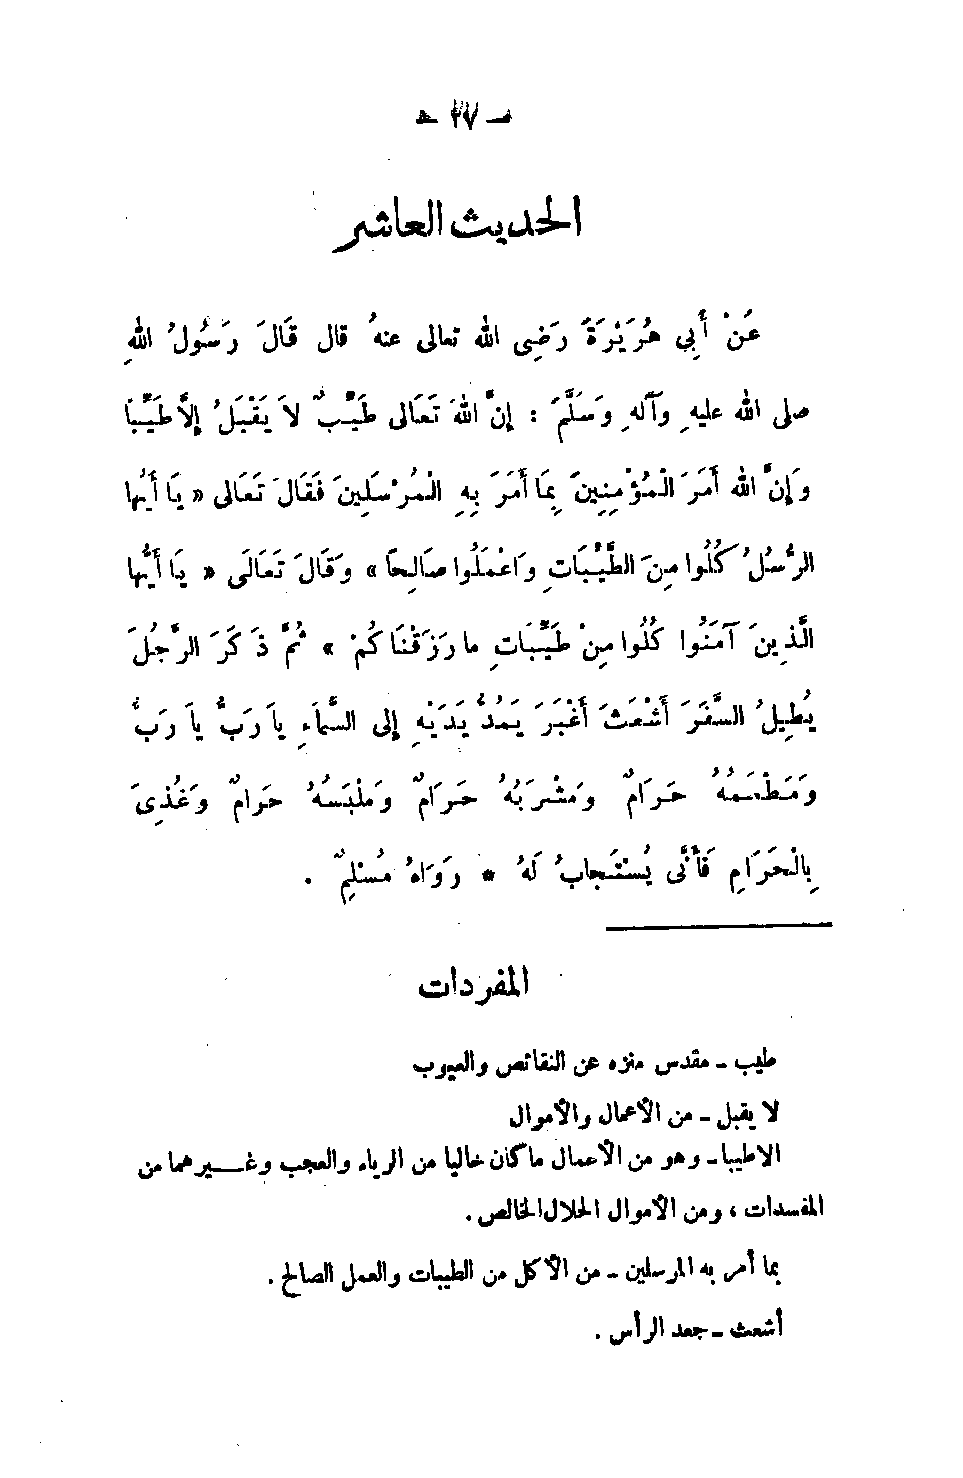 — ٢٧ —
الحديث العاشر
عَنْ أَبِي هُرَيْرَةَ رَضِى الله تعالى عنهُ قال قَالَ رَسُولُ اللهِ
صلى الله عليهِ وآلهِ وَسَلَّمَ : إنَّ اللهَ تَعَالى طَيِّبٌ لاَ يَقْبَلُ إلاَّ طَيِّبًا
وَإنَّ الله أَمَرَ الْمُؤْمِنِينَ بِمَا أَمَرَ بِهِ الْمُرْسَلِينَ فَقَالَ تَعَالى « يَا أَيُّها
الرُّسُلُ كُلُوا مِنَ الطَّيِّبَاتِ وَاعْمَلُوا صَالِحًا » وَقَالَ تَعَالَى « يَا أَيُّها
الَّذِينَ آمَنُوا كُلُوا مِنْ طَيِّبَاتِ ما رَزَقْنَا كُمْ » ثُمَّ ذَكَرَ الرَّجُلَ
يُطِيلُ السَّفَرَ أَشْعَثَ أَغْبَرَ يَمُدُّ يَدَيْهِ إلى السَّمَاءِ يَا رَبُّ يَا رَبُّ
وَمَطْعَمُهُ حَرَامٌ وَمَشْرَبُهُ حَرَامٌ وَمَلْبَسُهُ حَرَامٌ وَغُذِىَ
بِالْحَرَامِ فَأَنَّى يُسْتَجابُ لَهُ * رَوَاهُ مُسْلِمٌ .
المفردات
طيب ـ مقدس منزه عن النقائص والعيوب
لا يقبل ـ من الأعمال والأموال
الاطيبا ـ وهو من الأعمال ماكان خاليا من الرياء والعجب وغـــيرهما من
المفسدات ، ومن الأموال الحلال الخالص .
بما أمر به المرسلين ـ من الأكل من الطيبات والعمل الصالح .
أشعث ـ جعد الرأس .